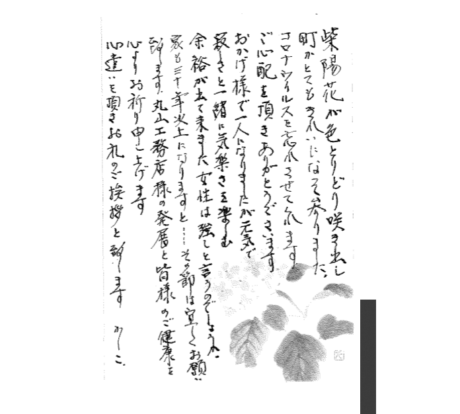 紫陽花が色とりどり咲き出し
町がとてもきれいになって参りました
コロナウイルスを忘れさせてくれます
ご心配を頂きありがとうございます
おかげ様で一人になりましたが元気で
寂しさと一緒に気楽さを楽しむ
余裕が出て来ました女性は強しと言うのでしょうか
家も三十年以上になりますと…その節は宜しくお願い
致します 丸山工務店様の発展と皆様のご健康を
心よりお祈り申し上げます
心遣いを頂きお礼のご挨拶と致します かしこ